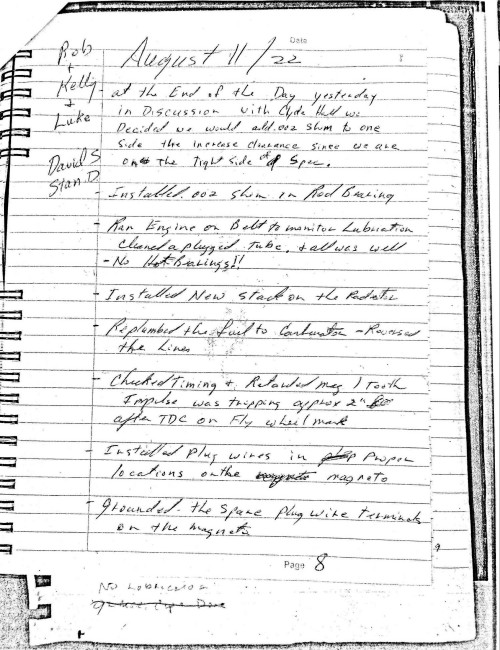 Date
August 11/22
Rob
+
Kelly
+
Luke
David S
Stan D.
- at the End of the Day yesterday
in Discussion with Clyde Hall we
Decided we would add .002 shim to one
side the increase clearance since we are
on the Tight side of Spec.
- Installed .002 shim in Rod Bearing
- Ran Engine on Belt to monitor Lubrication
cleaned a plugged tube, + all was well
- No Hot Bearings!!
- Installed New stack on the Radiator
- Replumbed the fuel to Carburetor - Reversed
the Lines
- Checked Timing + Retarded mag 1 Tooth
Impulse was tripping approx 2"
after TDC on Fly wheel mark
- Installed Plug wires in Proper
locations on the magneto
- grounded the Spare Plug wire Terminals
on the magneto
Page 8
9
No Lubricator